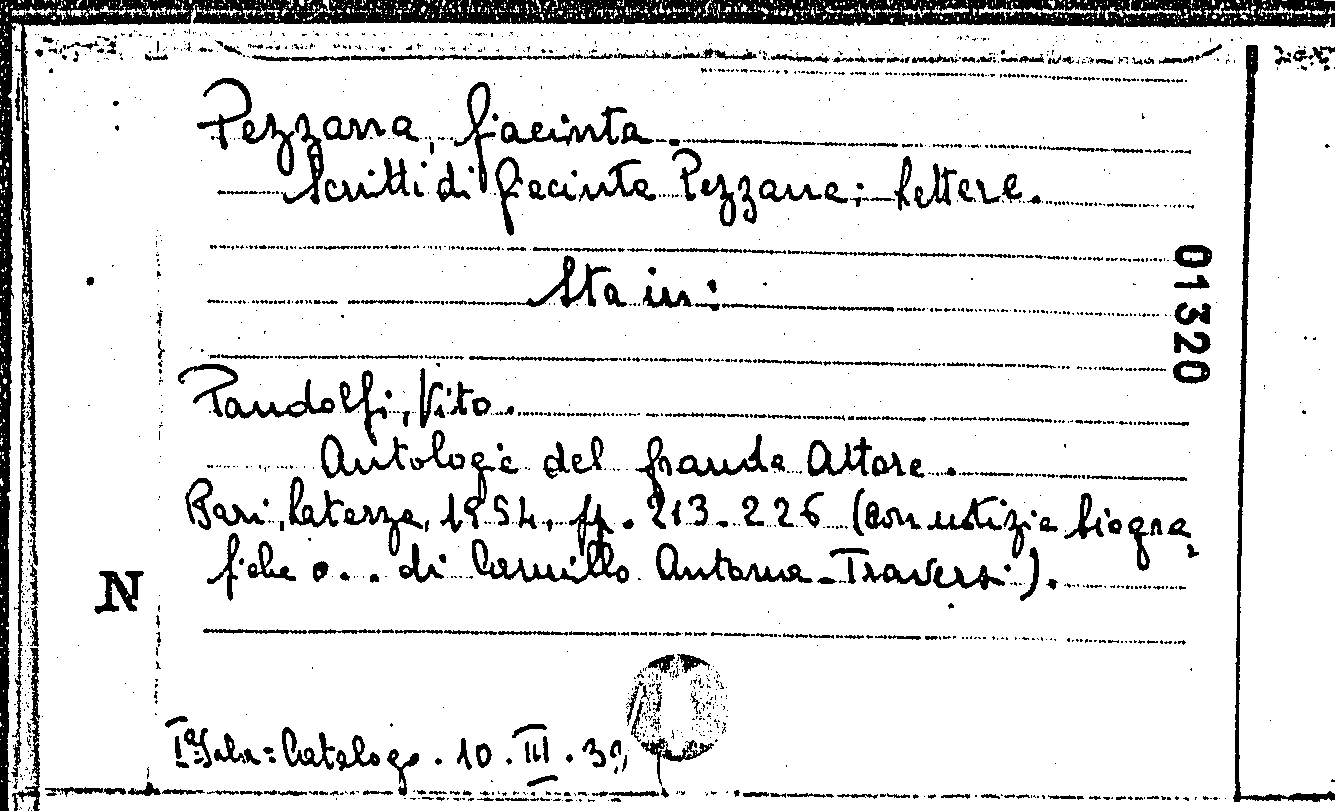 Pezzana, Giacinta.
Scritti di Giacinta Pezzana; Lettere.
Sta in:
01320
Pandolfi, Vito.
Antologia del grande Attore.
Bari, Laterza, 1954, pp. 213-226 (con notizie biogra
fiche o... di Camillo Antona-Traversi).
N
Catalogo. 10. III. 39